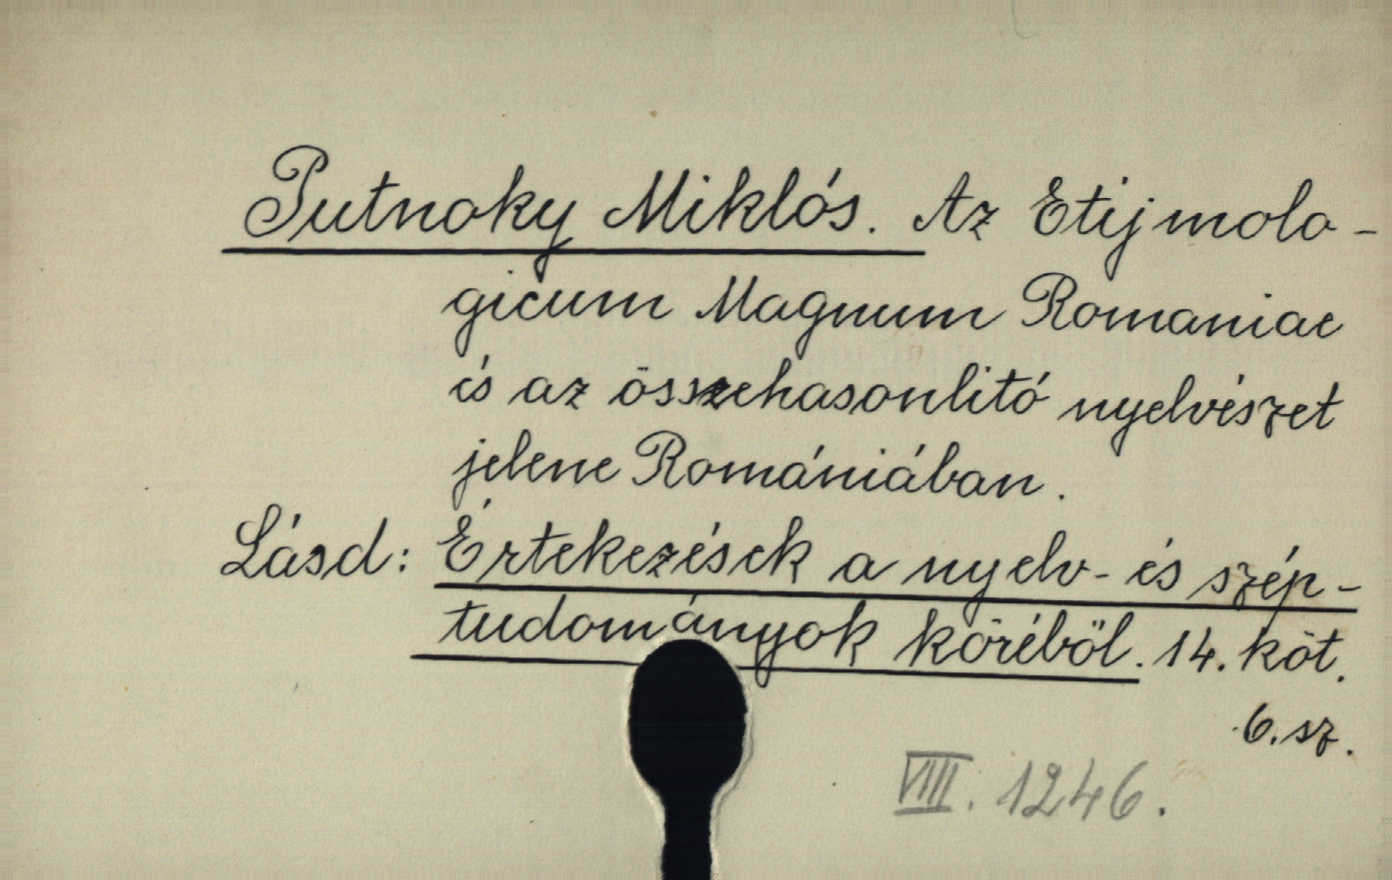 Putnoky Miklós. Az Etijmolo-
gicum Magnum Romaniae
és az összehasonlitó nyelvészet
jelene Romániában.
Lásd: Értekezések a nyelv- és szép-
tudományok köréből. 14. köt.
6. sz.
VIII. 1246.